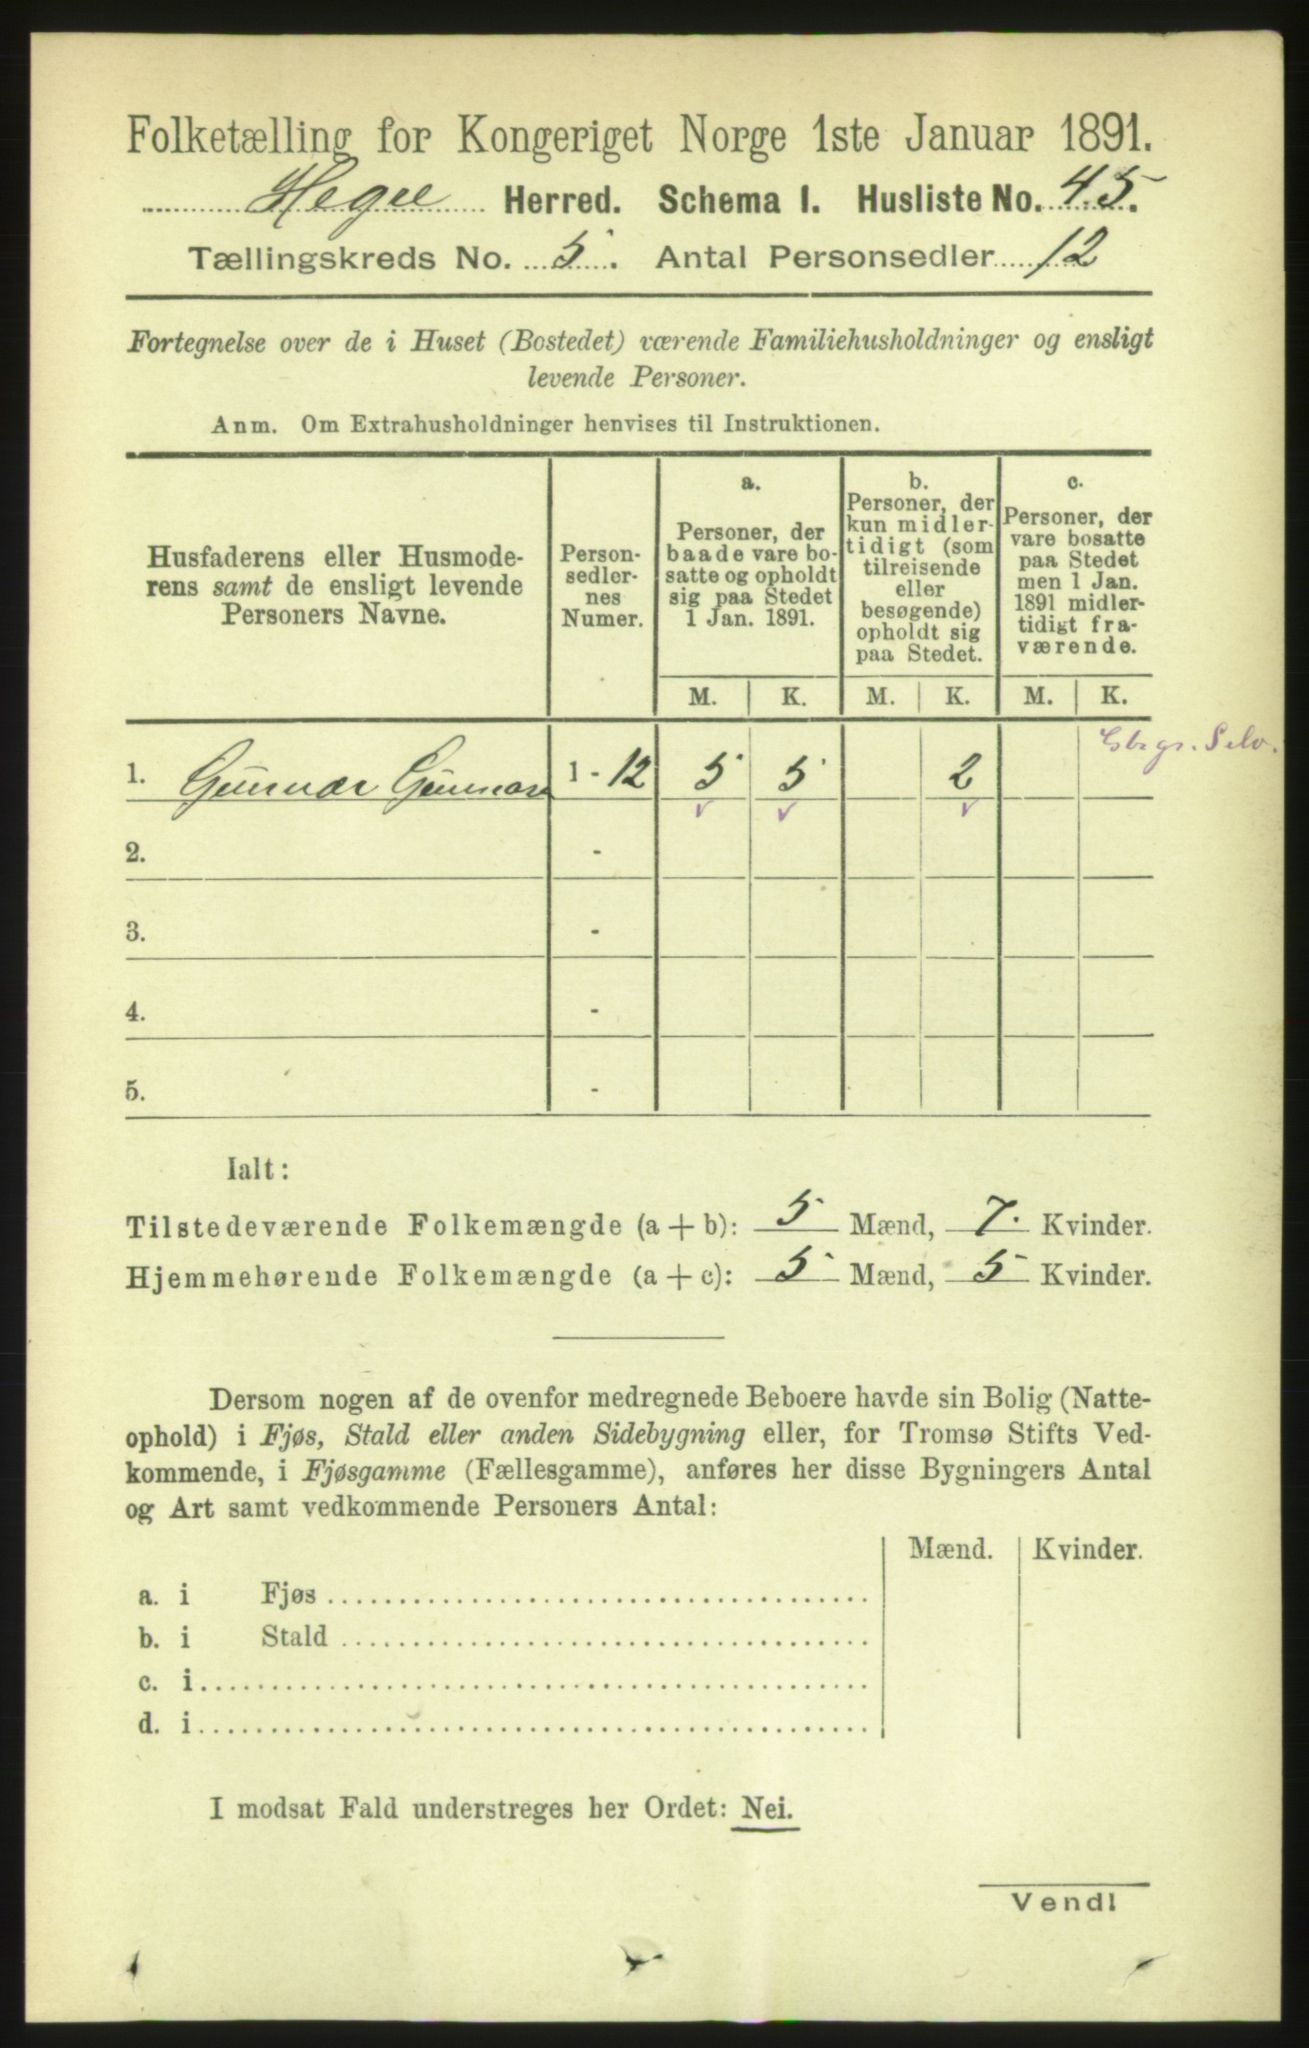 Folketælling for Kongeriget Norge 1ste Januar 1891.
Hegre Herred. Schema I. Husliste No. 45.
Tællingskreds No. 5. Antal Personsedler 12
Fortegnelse over de i Huset (Bostedet) værende Familiehusholdninger og ensligt
levende Personer.
Anm. Om Extrahusholdninger henvises til Instruktionen.
Husfaderens eller Husmode-
rens samt de ensligt levende
Personers Navne.
Person-
sedler-
nes
Numer.
a.
Personer, der
baade vare bo-
satte og opholdt
sig paa Stedet
1 Jan. 1891.
b.
Personer, der
kun midler-
tidigt (som
tilreisende
eller
besøgende)
opholdt sig
paa Stedet.
c.
Personer, der
vare bosatte
paa Stedet
men 1 Jan.
1891 midler-
tidigt fra-
værende.
M. K. M. K. M. K.
Gbgr. Selv.
1. Gunnar Gunnars 1 - 12 5 5 2
2. -
3. -
4. -
5. -
Ialt:
Tilstedeværende Folkemængde (a + b): 5 Mænd, 7. Kvinder.
Hjemmehørende Folkemængde (a + c): 5 Mænd, 5 Kvinder.
Dersom nogen af de ovenfor medregnede Beboere havde sin Bolig (Natte-
ophold) i Fjøs, Stald eller anden Sidebygning eller, for Tromsø Stifts Ved-
kommende, i Fjøsgamme (Fællesgamme), anføres her disse Bygningers Antal
og Art samt vedkommende Personers Antal:
Mænd. Kvinder.
a. i Fjøs
b. i Stald
c. i
d. i
I modsat Fald understreges her Ordet: Nei.
Vendl